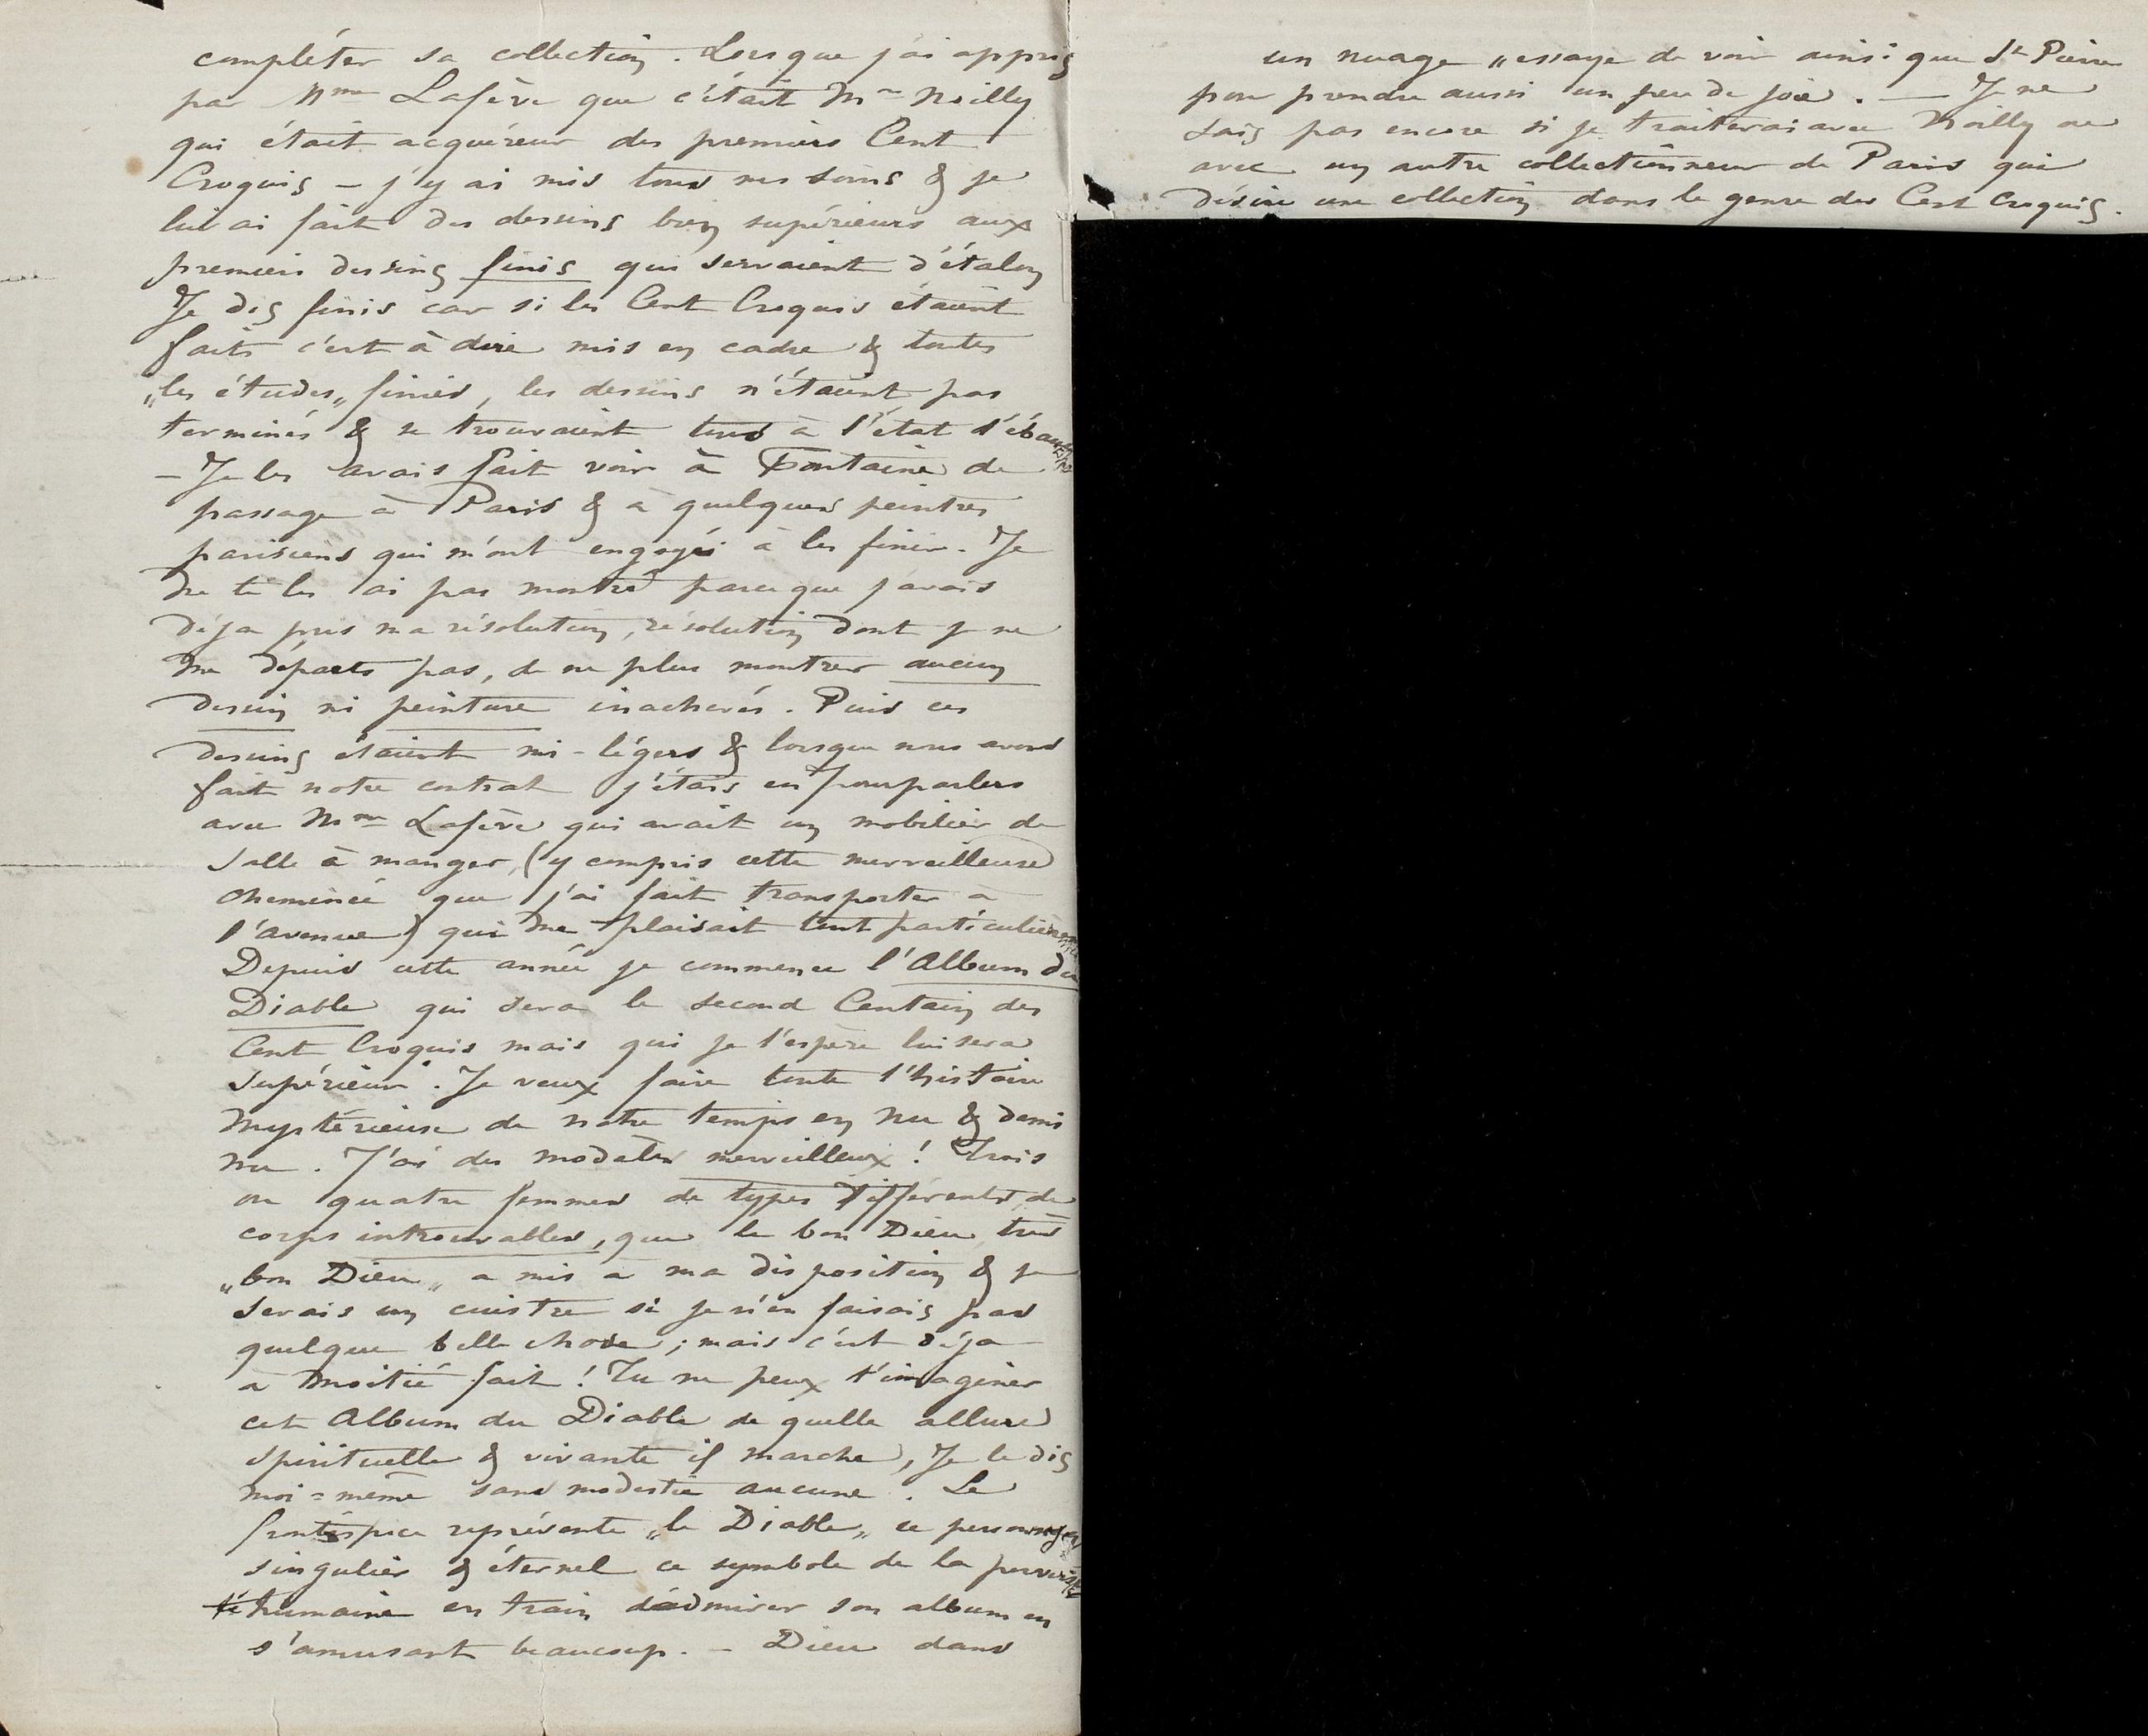 compléter sa collection. Lorsque j'ai appris
par Mme Lafère que c'était Mr Noilly
qui était acquéreur des premiers Cent
Croquis – j'y ai mis tous mes soins & je
lui ai fait des dessins bien supérieurs aux
premiers dessins finis qui servaient d'étalon
Je dis finis car si les Cent Croquis étaient
faits c'est à dire mis en cadre & toutes
„les études„ finies, les dessins n'étaient pas
terminés & se trouvaient tous à l'état d'ébauche
– Je les avais fait voir à Fontaine de
passage à Paris & à quelques peintres
parisiens qui m'ont engagé à les finir. Je
ne te les ai pas montré parce que j'avais
déja pris ma résolution, résolution dont je ne
me dépars pas, de ne plus montrer aucun
dessin ni peinture inachevés. Puis ces
dessins étaient mi-légers & lorsque nous avons
fait notre contrat j'étais en pourparlers
avec Mme Lafère qui avait un mobilier de
salle à manger, (y compris cette merveilleuse
cheminée que j'ai fait transporter à
l'avenue) qui me plaisait tout particulièrement
Depuis cette année je commence l'Album du
Diable qui sera le second Centain des
Cent Croquis mais qui je l'espère lui sera
supérieur. Je veux faire toute l'histoire
mystérieuse de notre temps en nu & demi
nu. J'ai des modèles merveilleux ! Trois
ou quatre femmes de types différents, de
corps introuvables, que le bon Dieu, très
„bon Dieu„ a mis à ma disposition & je
serais un cuistre si je n'en faisais pas
quelque belle chose ; mais c'est déja
à moitié fait ! Tu ne peux t'imaginer
cet Album du Diable de quelle allure
spirituelle & vivante il marche, Je le dis
moi=même sans modestie aucune. Le
frontispice représente „le Diable„ ce personnage
singulier & éternel ce symbole de la perversi
té humaine en train d'admirer son album en
s'amusant beaucoup. – Dieu dans
un nuage „essaye de voir ainsi que St Pierre
pour prendre aussi un peu de joie. — Je ne
sais pas encore si je traiterai avec Noilly ou
avec un autre collectionneur de Paris qui
désire une collection dans le genre des Cent Croquis.